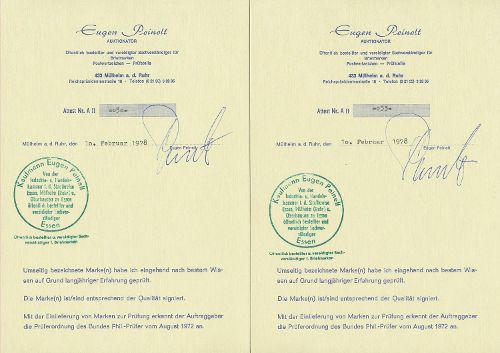 Eugen Peinelt
AUKTIONATOR
Öffentlich bestellter und vereidigter Sachverständiger für
Briefmarken
Postwertzeichen — Prüfstelle
433 Mülheim a. d. Ruhr
Attest Nr. A II
Mülheim a. d. Ruhr, den 10. Februar 1978
Eugen Peinelt
Kaufmann Eugen Peinelt
Von der
Industrie- u. Handels-
kammer f. d. Stadtkreise
Essen, Mülheim (Ruhr) u.
Oberhausen zu Essen
öffentlich bestellter und
vereidigter Sachver-
ständiger
Essen
Öffentlich bestellter u. vereidigter Sach-
verständiger f. Briefmarken
Umseitig bezeichnete Marke(n) habe ich eingehend nach bestem Wis-
sen auf Grund langjähriger Erfahrung geprüft.
Die Marke(n) ist/sind entsprechend der Qualität signiert.
Mit der Einlieferung von Marken zur Prüfung erkennt der Auftraggeber
die Prüferordnung des Bundes Phil.-Prüfer vom August 1972 an.
Eugen Peinelt
AUKTIONATOR
Öffentlich bestellter und vereidigter Sachverständiger für
Briefmarken
Postwertzeichen — Prüfstelle
433 Mülheim a. d. Ruhr
Attest Nr. A II
Mülheim a. d. Ruhr, den 10. Februar 1978
Eugen Peinelt
Kaufmann Eugen Peinelt
Von der
Industrie- u. Handels-
kammer f. d. Stadtkreise
Essen, Mülheim (Ruhr) u.
Oberhausen zu Essen
öffentlich bestellter und
vereidigter Sachver-
ständiger
Essen
Öffentlich bestellter u. vereidigter Sach-
verständiger f. Briefmarken
Umseitig bezeichnete Marke(n) habe ich eingehend nach bestem Wis-
sen auf Grund langjähriger Erfahrung geprüft.
Die Marke(n) ist/sind entsprechend der Qualität signiert.
Mit der Einlieferung von Marken zur Prüfung erkennt der Auftraggeber
die Prüferordnung des Bundes Phil.-Prüfer vom August 1972 an.